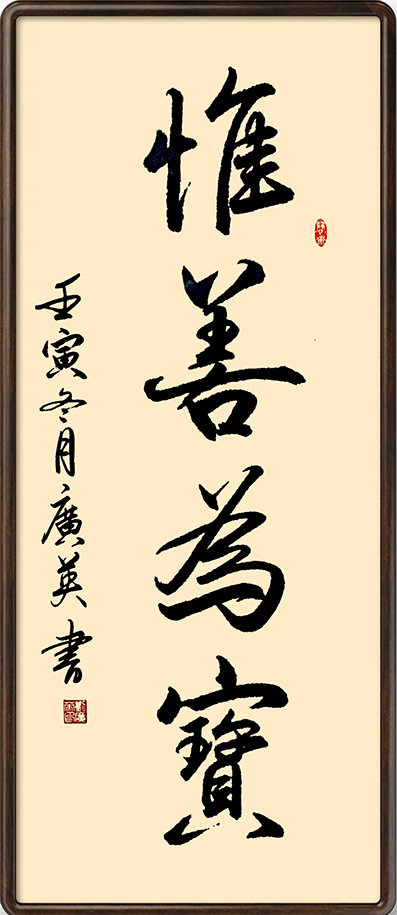 惟善為寶
壬寅冬月廣英書